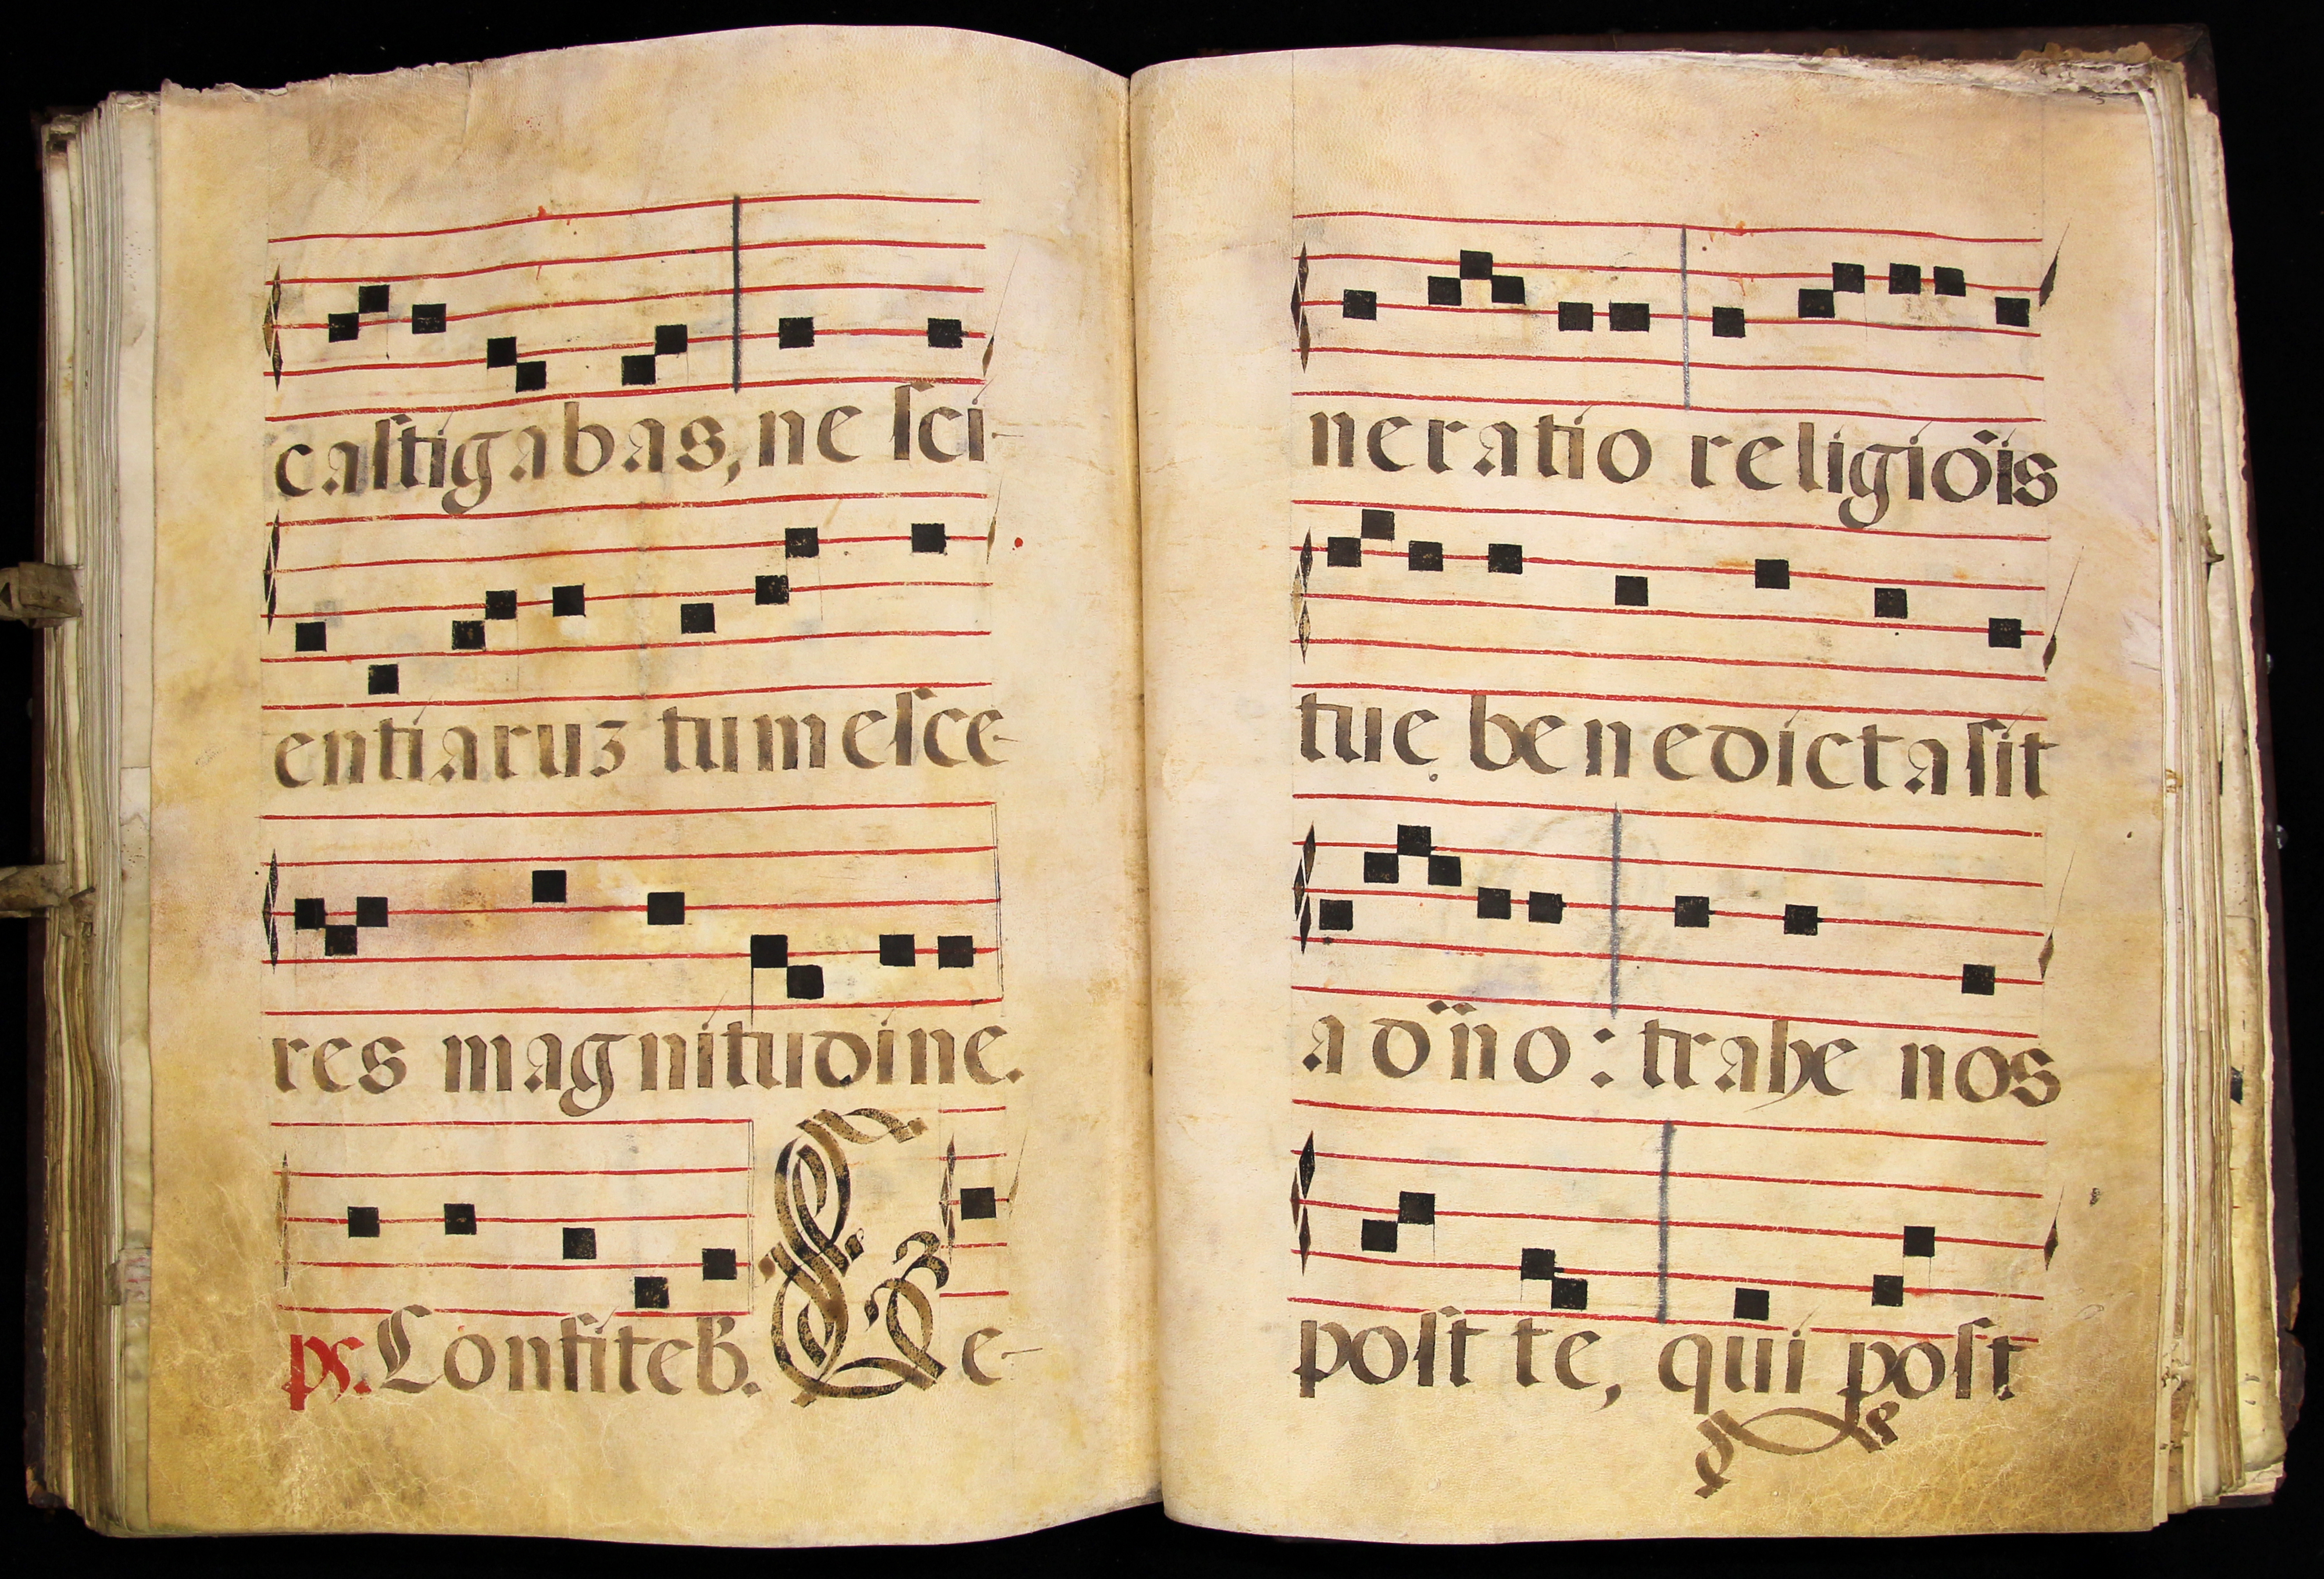 castigabas, ne sci-
entiaruz tumesce-
res magnitudine.
ps. Confiteb. Ge-
neratio religiõis
tue benedicta sit
a dño: trahe nos
post te, qui post